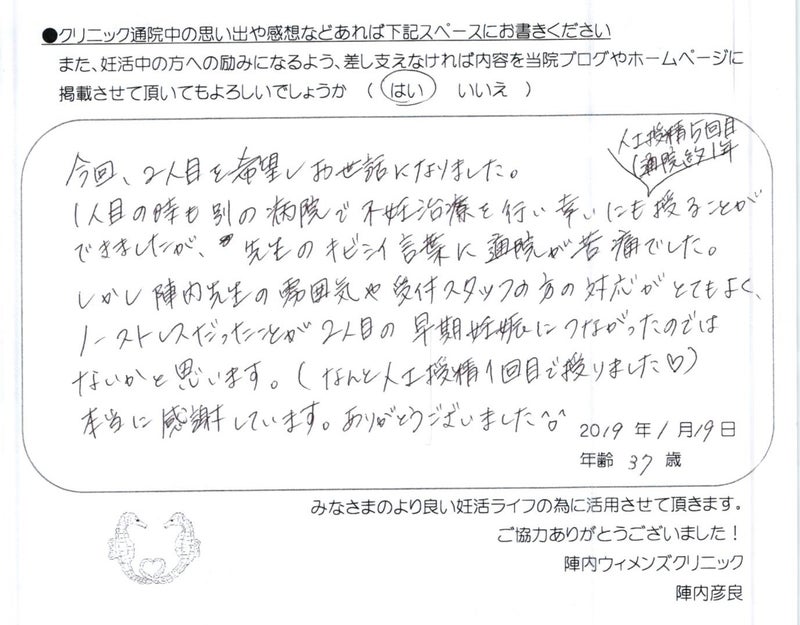 ●クリニック通院中の思い出や感想などあれば下記スペースにお書きください
また、妊活中の方への励みになるよう、差し支えなければ内容を当院ブログやホームページに
掲載させて頂いてもよろしいでしょうか （ はい いいえ ）
人工授精5回目
通院約1年
今回、2人目を希望しお世話になりました。
1人目の時も別の病院で不妊治療を行い幸いにも授ることが
できましたが、先生のキビシイ言葉に通院が苦痛でした。
しかし陣内先生の雰囲気や受付スタッフの方の対応がとてもよく、
ノーストレスだったことが2人目の早期妊娠につながったのでは
ないかと思います。(なんと人工授精1回目で授りました♡)
本当に感謝しています。ありがとうございました^o^
2019 年 1 月 19 日
年齢 37 歳
みなさまのより良い妊活ライフの為に活用させて頂きます。
ご協力ありがとうございました！
陣内ウィメンズクリニック
陣内彦良